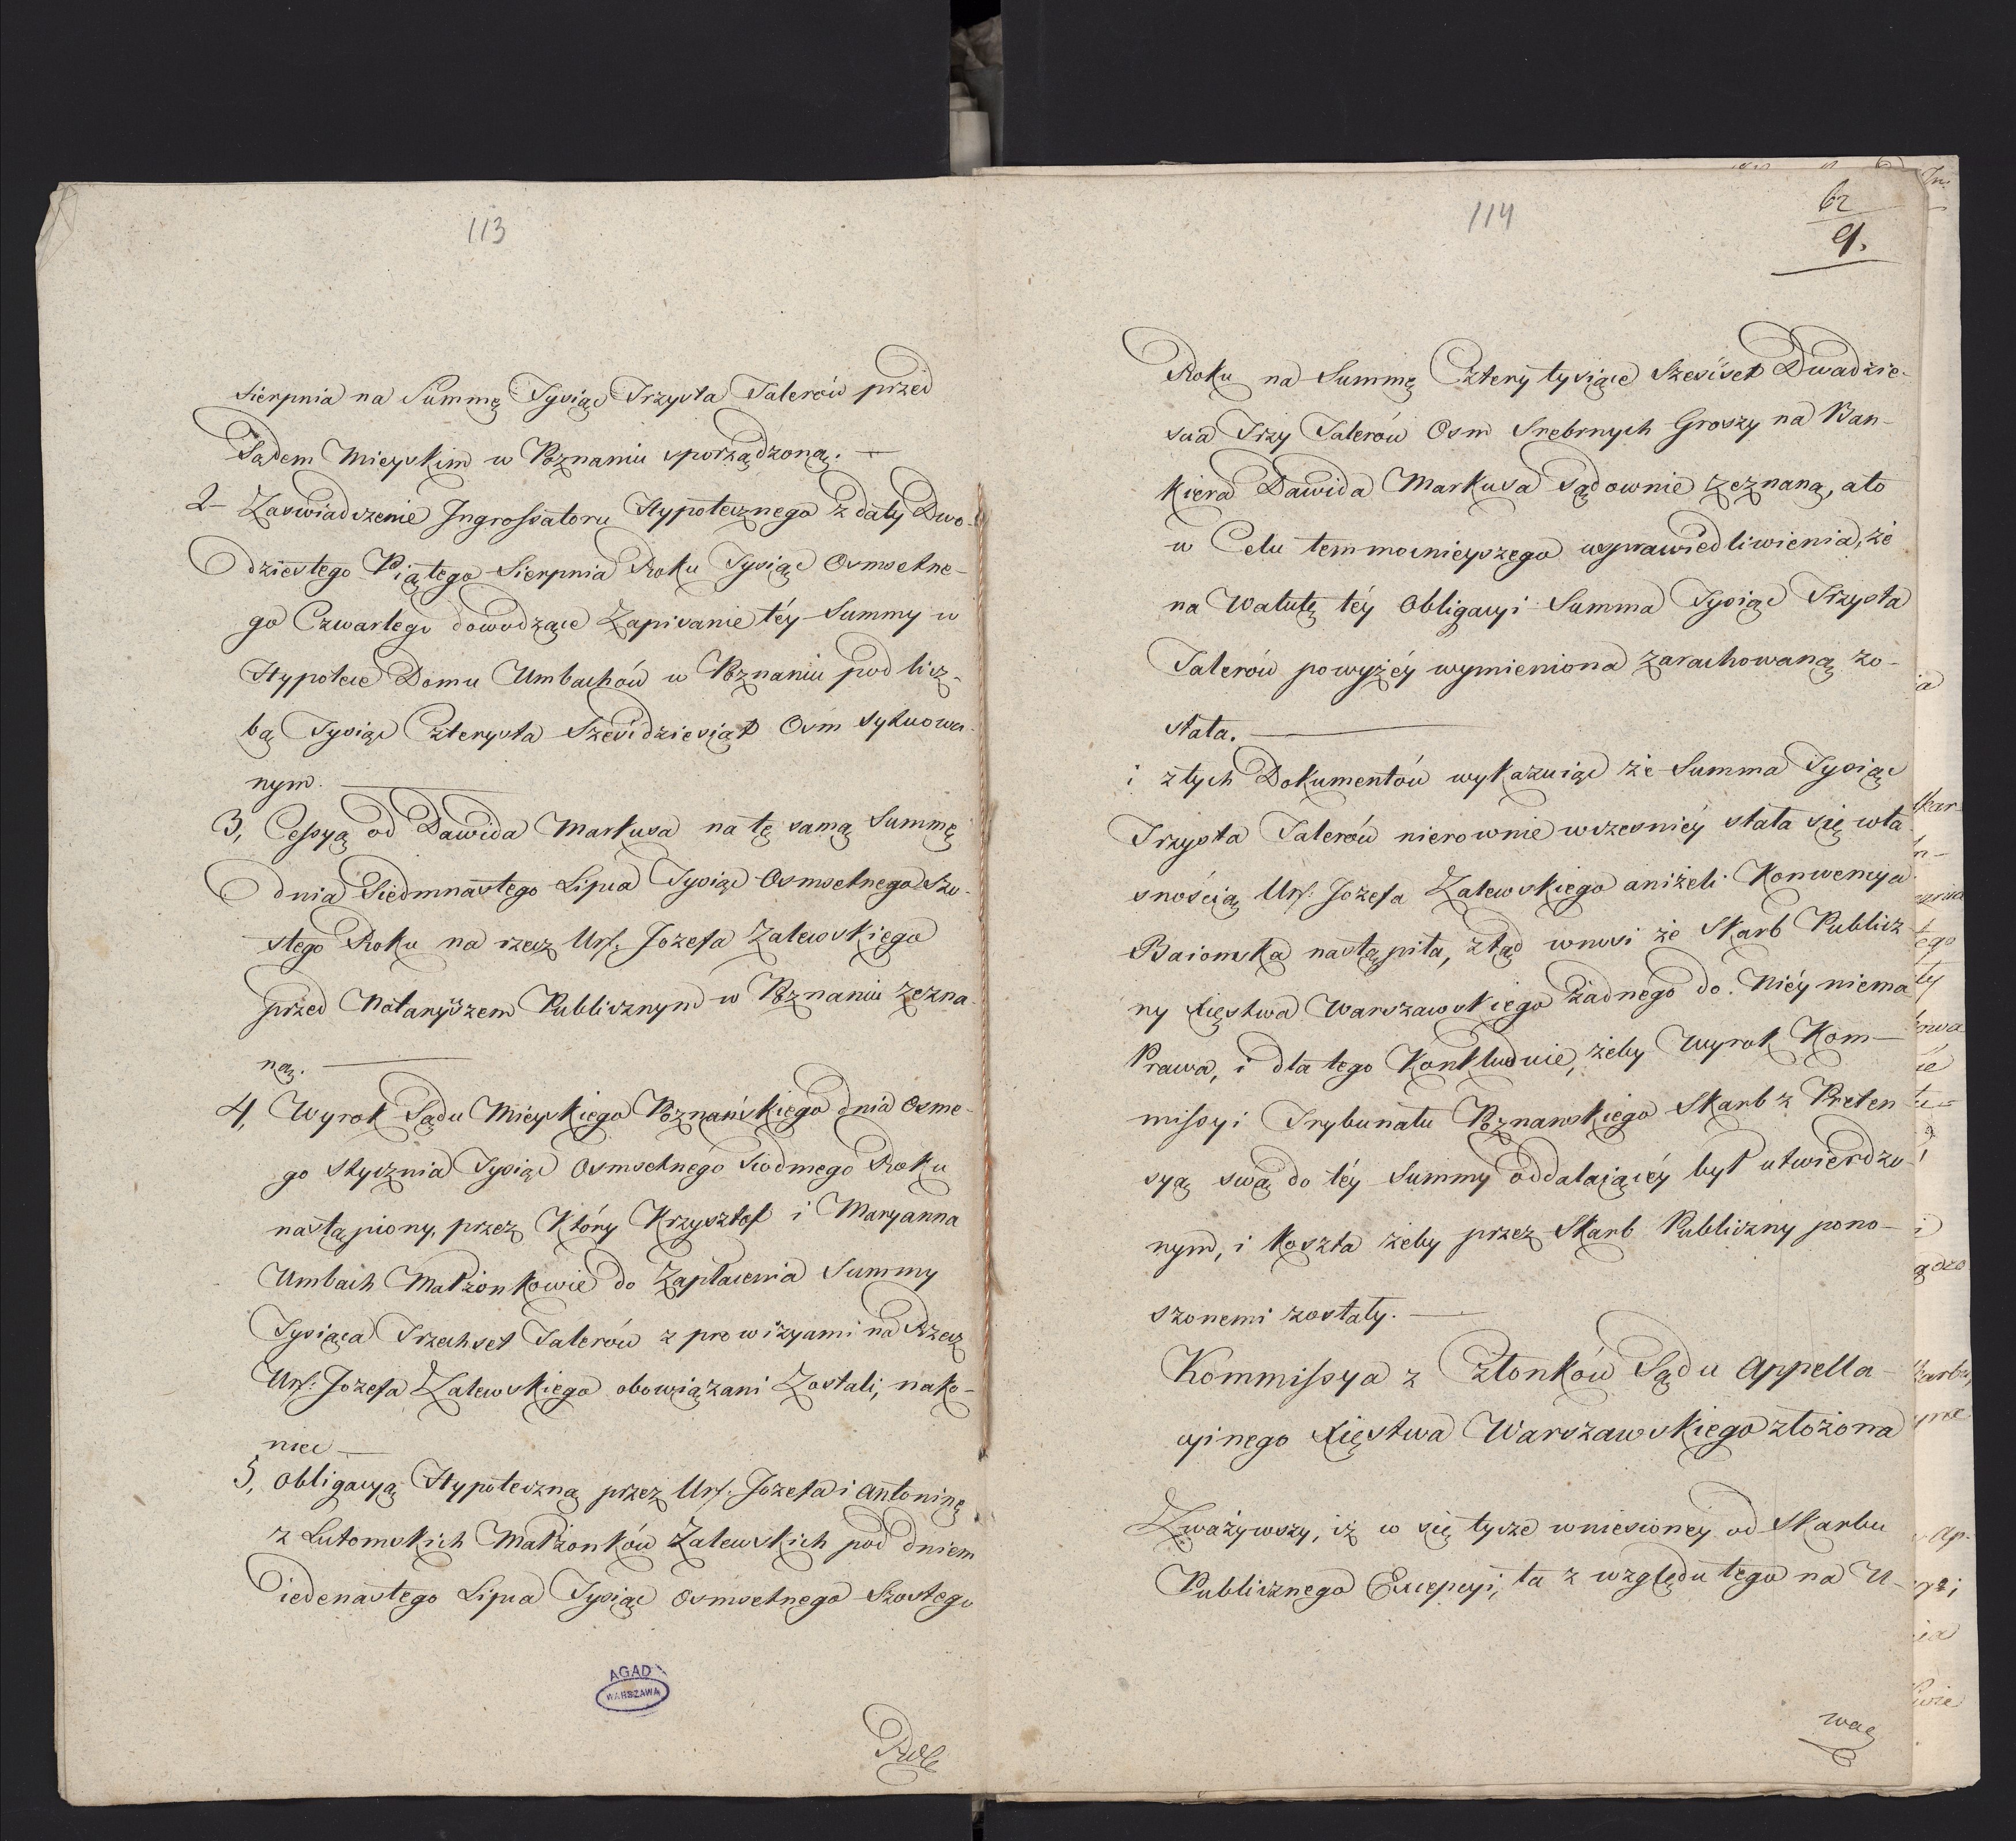 113
Sierpnia na Summę Tysiąc Trzysta Talerów przed
Sądem Mieyskim w Poznaniu sporządzoną. —
2- Zaswiadczenie Ingrossatoru Hypotecznego z daty Dwo-
dziestego Piątego Sierpnia Roku Tysiąc Osmsetne-
go Czwartego dowodzące Zapisanie téy Summy w
Hypotece Domu Umbachów w Poznaniu pod licz-
bą Tysiąc Czterysta Sześćdziesiąt Osm sytuowa-
nym. —
3, Cessyą od Dawida Markusa na tę samą Summę
dnia Siedmnastego Lipca Tysiąc Osmsetnego Szo-
stego Roku na rzecz Ur: Jozefa Zalewskiego
przed Notaryszem Publicznym w Poznaniu zezna-
ną. —
4, Wyrok Sądu Mieyskiego Poznańskiego dnia Osme-
go Stycznia Tysiąc Osmsetnego Siodmego Roku
nastąpiony, przez Który Krzysztof i Maryanna
Umbach Małżonkowie do Zapłacenia Summy
Tysiąca Trzechset Talerów z prowizyami na Rzecz
Ur: Jozefa Zalewskiego obowiązani Zostali, nako-
niec —
5, Obligacyą Hypoteczną przez Ur: Jozefa i Antoninę
z Lutomskich Małżonków Zalewskich pod dniem
iedenastego Lipca Tysiąc Osmsetnego Szostego
AGAD
WARSZAWA
114
62
9.
Roku na Summę Cztery tysiące Sześćset Dwadzie-
scia Trzy Talerów Osm Srebrnych Groszy na Ban-
kiera Dawida Markusa sądownie zeznaną, a to
w Celu tem mocnieyszego usprawiedliwienia, że
na Walutę téy Obligacyi Summa Tysiąc Trzysta
Talerów powyżéy wymieniona zarachowaną zo-
stała. —
i z tych Dokumentów wykazuiąc że Summa Tysiąc
Trzysta Talerów nierownie wczesniéy stała się wła-
snością Ur: Jozefa Zalewskiego aniżeli Konwencya
Baiońska nastąpiła, ztąd wnosi że Skarb Publicz-
ny Xięstwa Warszawskiego żadnego do Niéy niema
Prawa, i dla tego Konkluduie, żeby Wyrok Kom-
missyi Trybunału Poznańskiego Skarb z Preten-
syą swą do téy Summy oddalaiącéy był utwierdzo-
nym, i koszta żeby przez Skarb Publiczny pono-
szonemi zostały. —
Kommissya z Członków Sądu Appella-
cyinego Xięstwa Warszawskiego złożona
Zważywszy, iż co się tycze wniesionéy od Skarbu
Publicznego Excepcyi, ta z względu tego na U-
wag